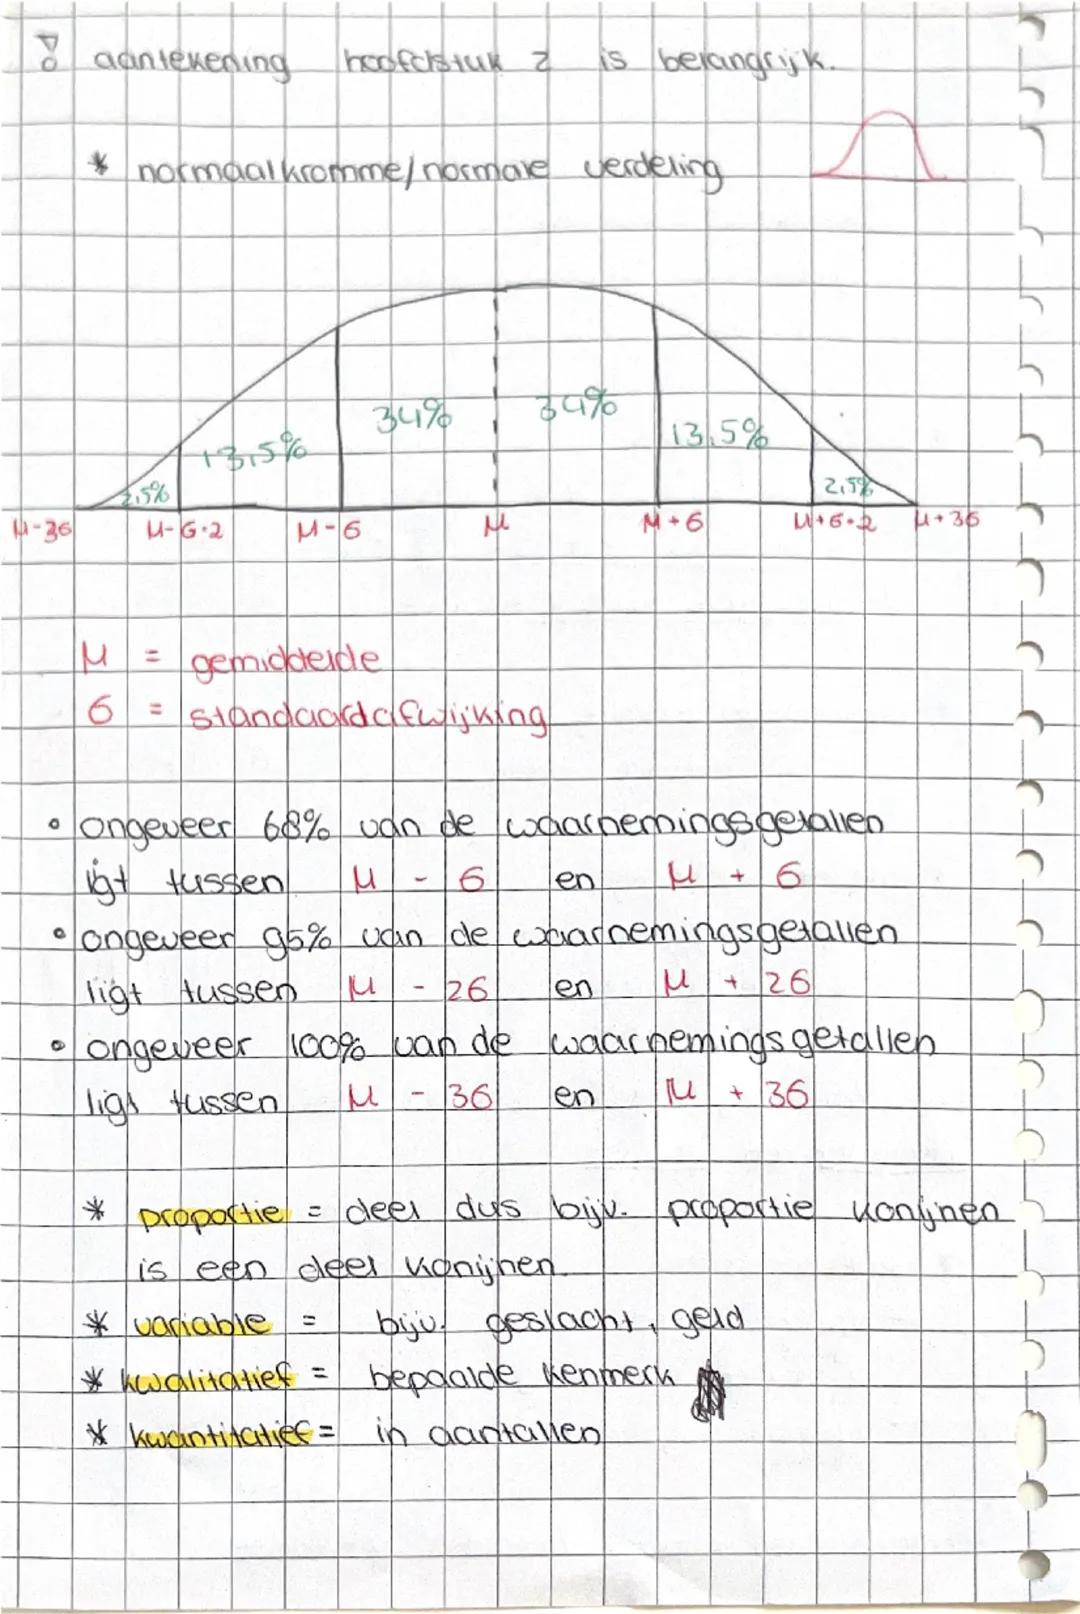 aantekening hoofdstuk 2 is belangrijk.
* normaalkromme/normale verdeling
34% 34%
13,5% 13,5%
2,5% 2,5%
μ-3σ μ-σ·2 μ-σ μ μ+σ μ+σ·2 μ+3σ
μ = gemiddelde
σ = standaardafwijking
• ongeveer 68% van de waarnemingsgetallen
ligt tussen μ - σ en μ + σ
• ongeveer 95% van de waarnemingsgetallen
ligt tussen μ - 2σ en μ + 2σ
• ongeveer 100% van de waarnemingsgetallen
ligt tussen μ - 3σ en μ + 3σ
* proportie = deel dus bijv. proportie konijnen
is een deel konijnen.
* variable = bijv. geslacht, geld
* kwalitatief = bepaalde kenmerk
* kwantitatief = in aantallen